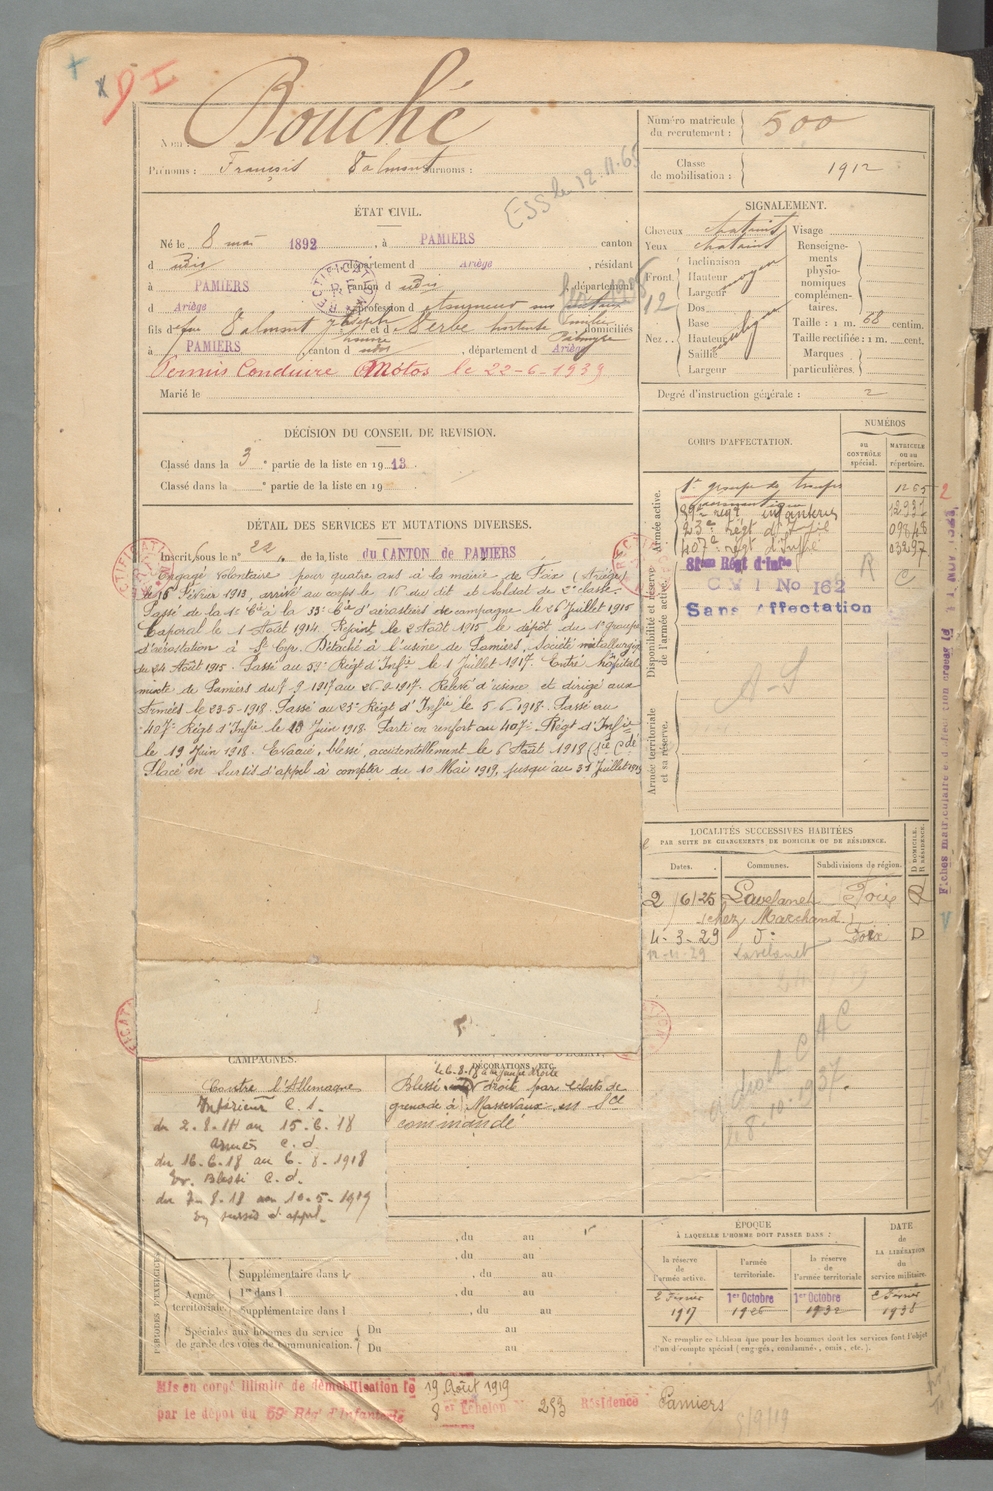 Nom Bouché
Prénoms : François Valmont Surnoms :
ESS le 12.11.65
ÉTAT CIVIL.
Né le 8 mai 1892, à PAMIERS canton
d udis, département d Ariège, résidant
à PAMIERS canton d udis, département
d Ariège profession de tourneur sur métaux
fils de feu Valmont Joseph et d Verbe hortense Emilie domiciliés
à PAMIERS, canton d udis, département d Ariège
Permis Conduire Motos le 22-6-1939
Marié le
DÉCISION DU CONSEIL DE REVISION.
Classé dans la 3e partie de la liste en 1913.
Classé dans la e partie de la liste en 19
DÉTAIL DES SERVICES ET MUTATIONS DIVERSES.
Inscrit sous le n° 22 de la liste du CANTON de PAMIERS
Engagé volontaire pour quatre ans à la mairie de Foix (Ariège)
le 15 Février 1913, arrivé au corps le 16 du dit et soldat de 2e classe.
Passé de la 1e Cie à la 33e Cie d'aérostiers de campagne le 26 Juillet 1915
Caporal le 1 Août 1914. Rejoint le 2 Août 1915 le dépôt du 1er Groupe
d'aérostation à St Cyr. Détaché à l'usine de Pamiers, Société métallurgique
du 24 Août 1915. Passé au 59e Régt d'Infie le 1 Juillet 1917. Entré hôpital
mixte de Pamiers du 7.9.1917 au 26.9.1917. Relevé d'usine et dirigé aux
Armées le 23-5-1918. Passé au 23e Régt d'Infie le 5.6.1918. Passé au
407e Régt d'Infie le 13 Juin 1918. Parti en renfort au 407e Régt d'Infie
le 19 Juin 1918. Evacué, blessé accidentellement le 6 Août 1918
Placé en Sursis d'appel à compter du 10 Mai 1919, jusqu'au 31 Juillet 1919
CAMPAGNES.
Contre l'Allemagne
Intérieur C.S.
du 2.8.14 au 15.6.18
Armées C.d.
du 16.6.18 au 6.8.1918
Ev. Blessé C.d.
du 7.8.18 au 10-5-1919
En sursis d'appel.
DÉCORATIONS, ETC.
Blessé le 6.8.18 à la jambe droite par éclats de
grenade à Massevaux en Sce
commandé
, du au
, du au
Supplémentaire dans l , du au
Armée territoriale : 1re dans l
Supplémentaire dans l , du au
Spéciales aux hommes du service de garde des voies de communication. Du au
Du au
PÉRIODES D'EXERCICES
Numéro matricule du recrutement : 500
Classe de mobilisation : 1912
SIGNALEMENT.
Cheveux chatains
Yeux chatains
Front Inclinaison
Hauteur moyen
Largeur
Nez Dos
Base
Hauteur
Saillie
Largeur
Visage
Renseignements physionomiques complémentaires.
Taille : 1 m. 68 centim.
Taille rectifiée : 1 m. cent.
Marques particulières.
Degré d'instruction générale : 2
CORPS D'AFFECTATION.
NUMÉROS
au CONTRÔLE spécial.
MATRICULE ou au répertoire.
Armée active.
1er groupe de troupes aéronautiques 1265
89e régt infanterie 12931
23e Régt d'Infie 09848
407e Régt d'Infie 03297
Disponibilité et réserve de l'armée active.
81ème Régt d'Infie
C M I No 162
Sans Affectation
R C
A-S
Armée territoriale et sa réserve.
LOCALITÉS SUCCESSIVES HABITÉES
PAR SUITE DE CHANGEMENTS DE DOMICILE OU DE RÉSIDENCE.
Dates. Communes. Subdivisions de région. D DOMICILE. R RÉSIDENCE.
2/6/25 Lavelanet Foix R
(chez Marchand)
4-3-29 d° Foix D
12-11-29 Lavelanet
a droit C A C
le 8.10.1937.
ÉPOQUE
À LAQUELLE L'HOMME DOIT PASSER DANS :
la réserve de l'armée active.
l'armée territoriale.
la réserve de l'armée territoriale
DATE de LA LIBÉRATION du service militaire.
2 Février 1917
1er Octobre 1926
1er Octobre 1932
2 Février 1938
Ne remplir ce tableau que pour les hommes dont les services font l'objet d'un décompte spécial (engagés, condamnés, omis, etc.).
Mis en congé illimité de démobilisation le 19 Août 1919
par le dépôt du 59e Rég d'Infanterie 8e Echelon N° 253 Résidence Pamiers
5/9/19